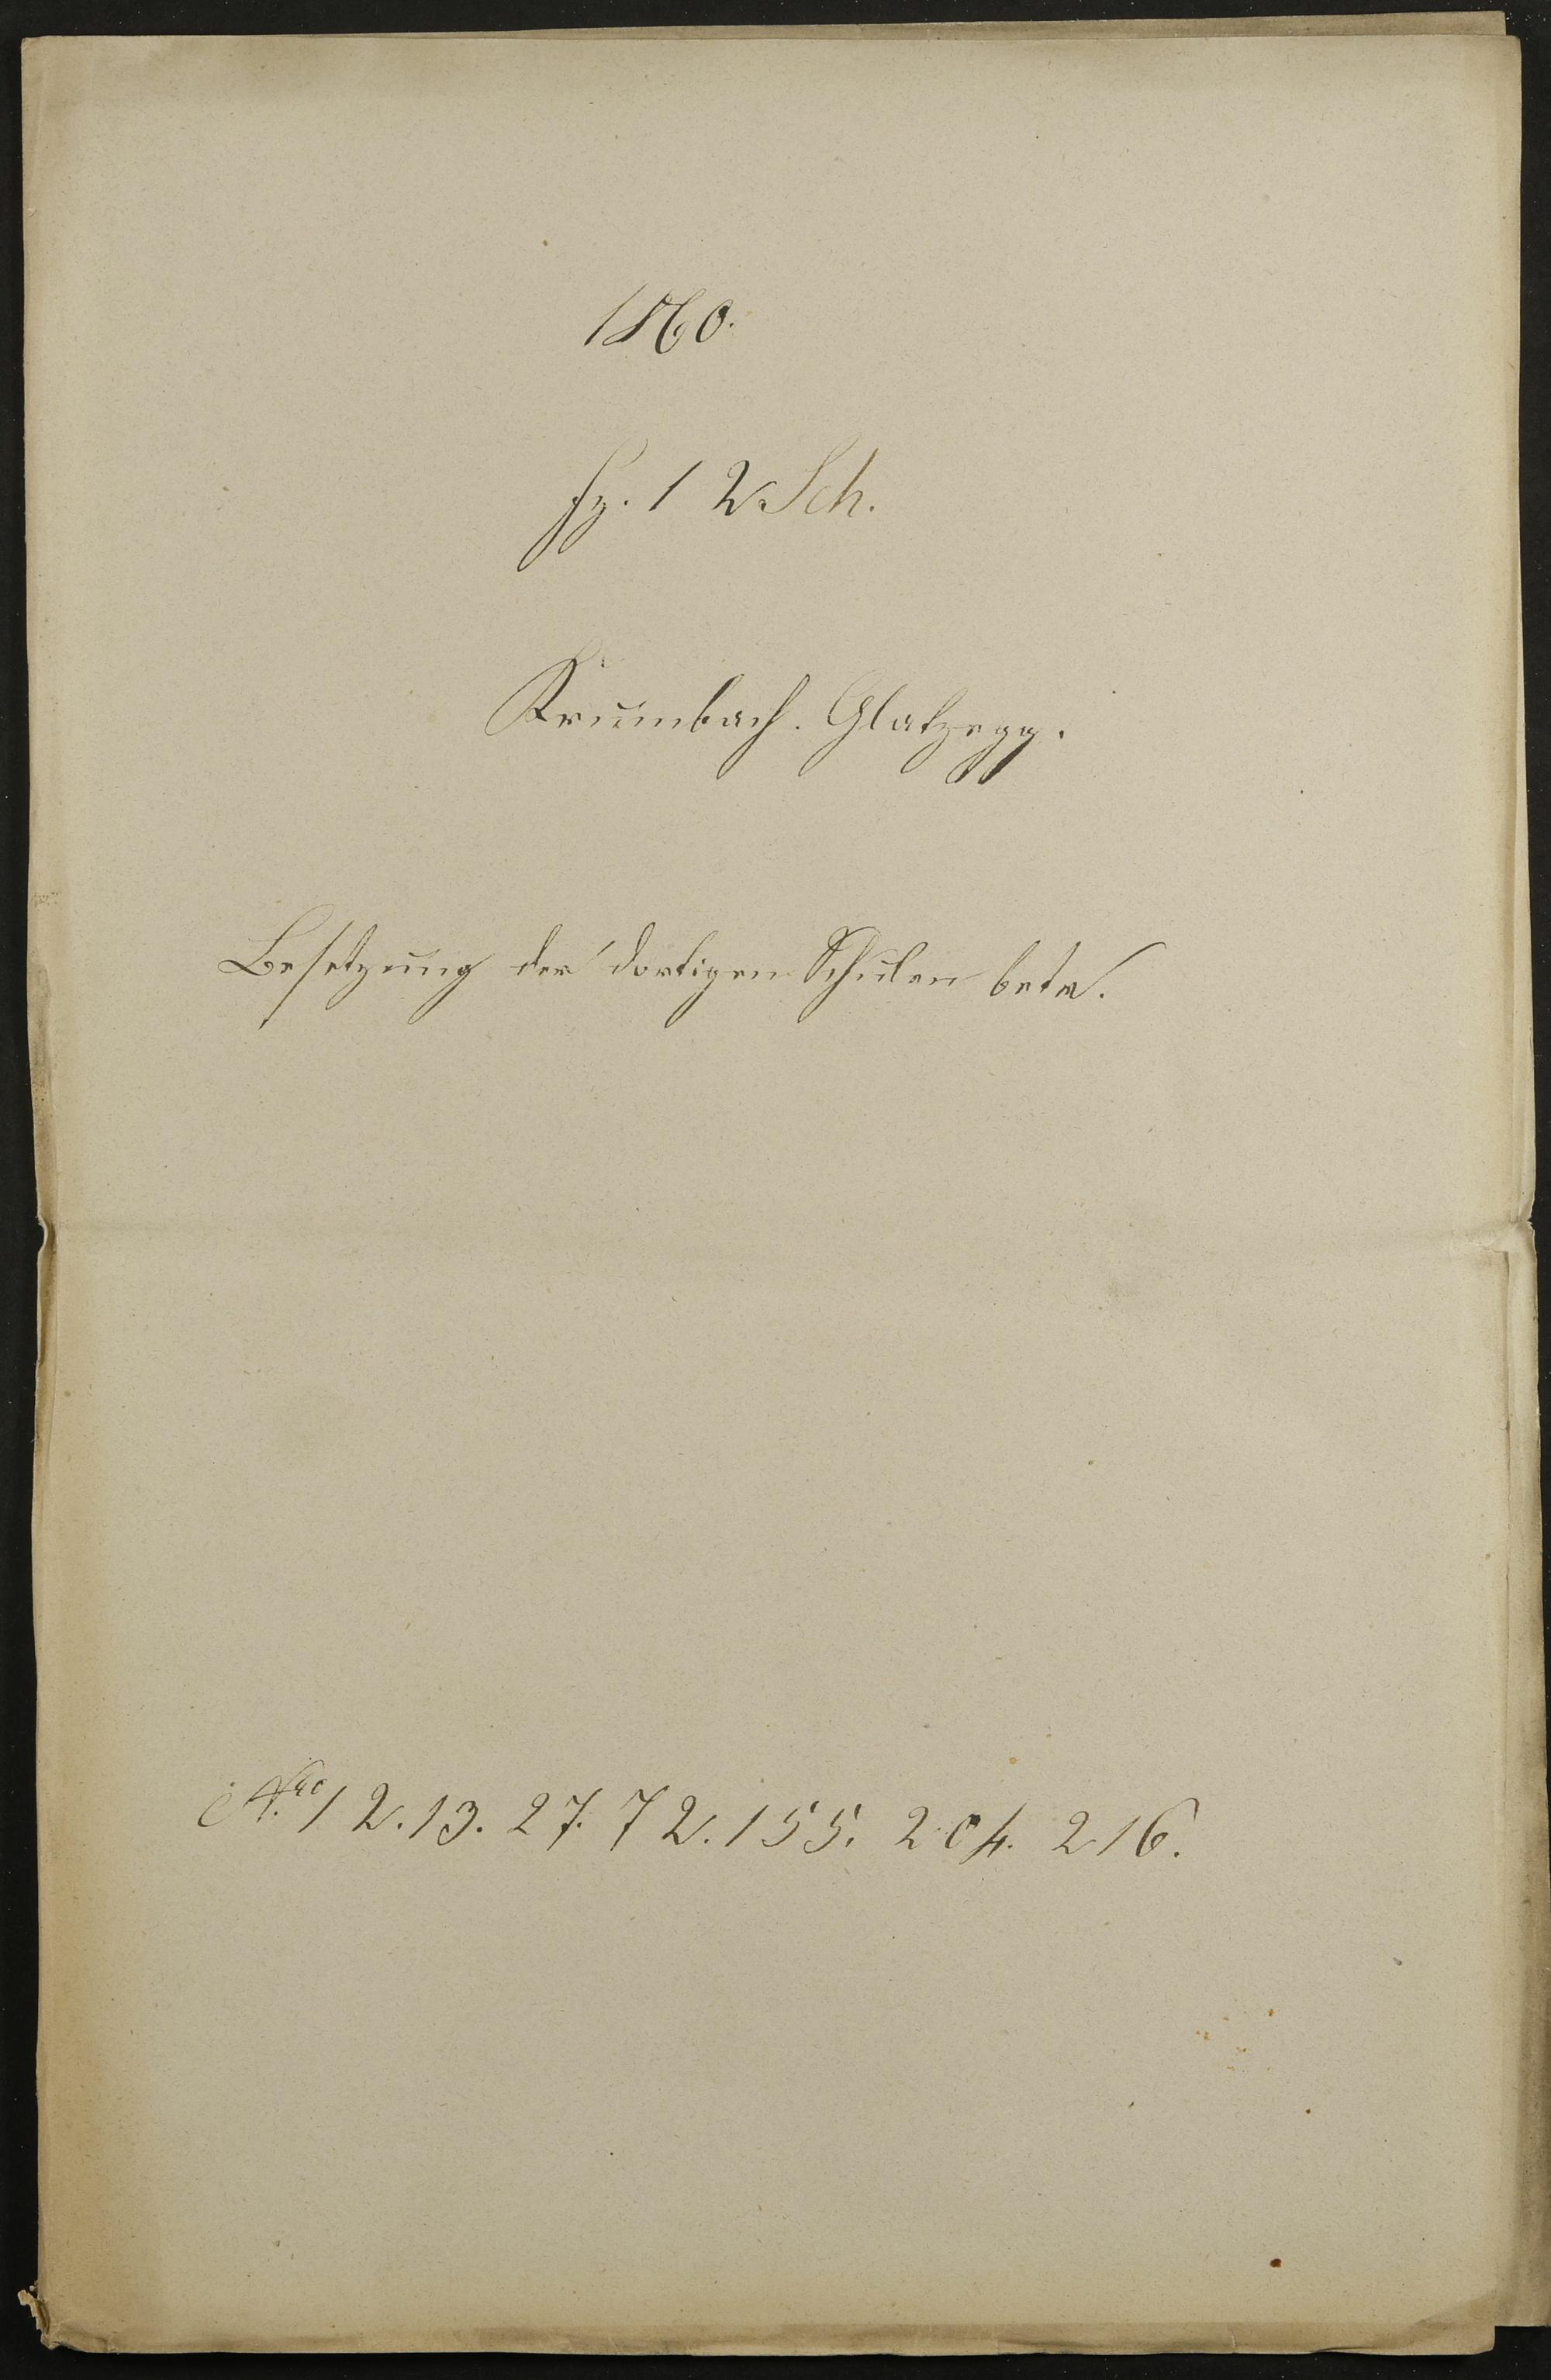 1860.
Fz. 12 Sch.
Krumbach. Glatzegg.
Besetzung der dortigen Schulen betr.
Nro 12. 13. 27. 72. 155. 204. 216.